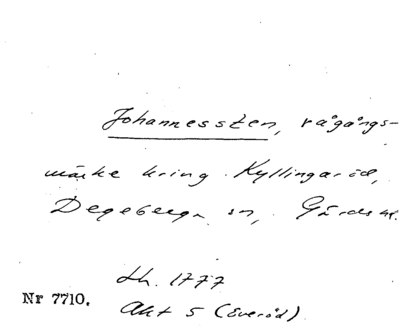 Johannessten, rågångs-
märke kring Kyllingaröd,
Degeberga sn, Gärds hd.
Lh. 1777
Nr 7710.
Akt 5 (Everöd)